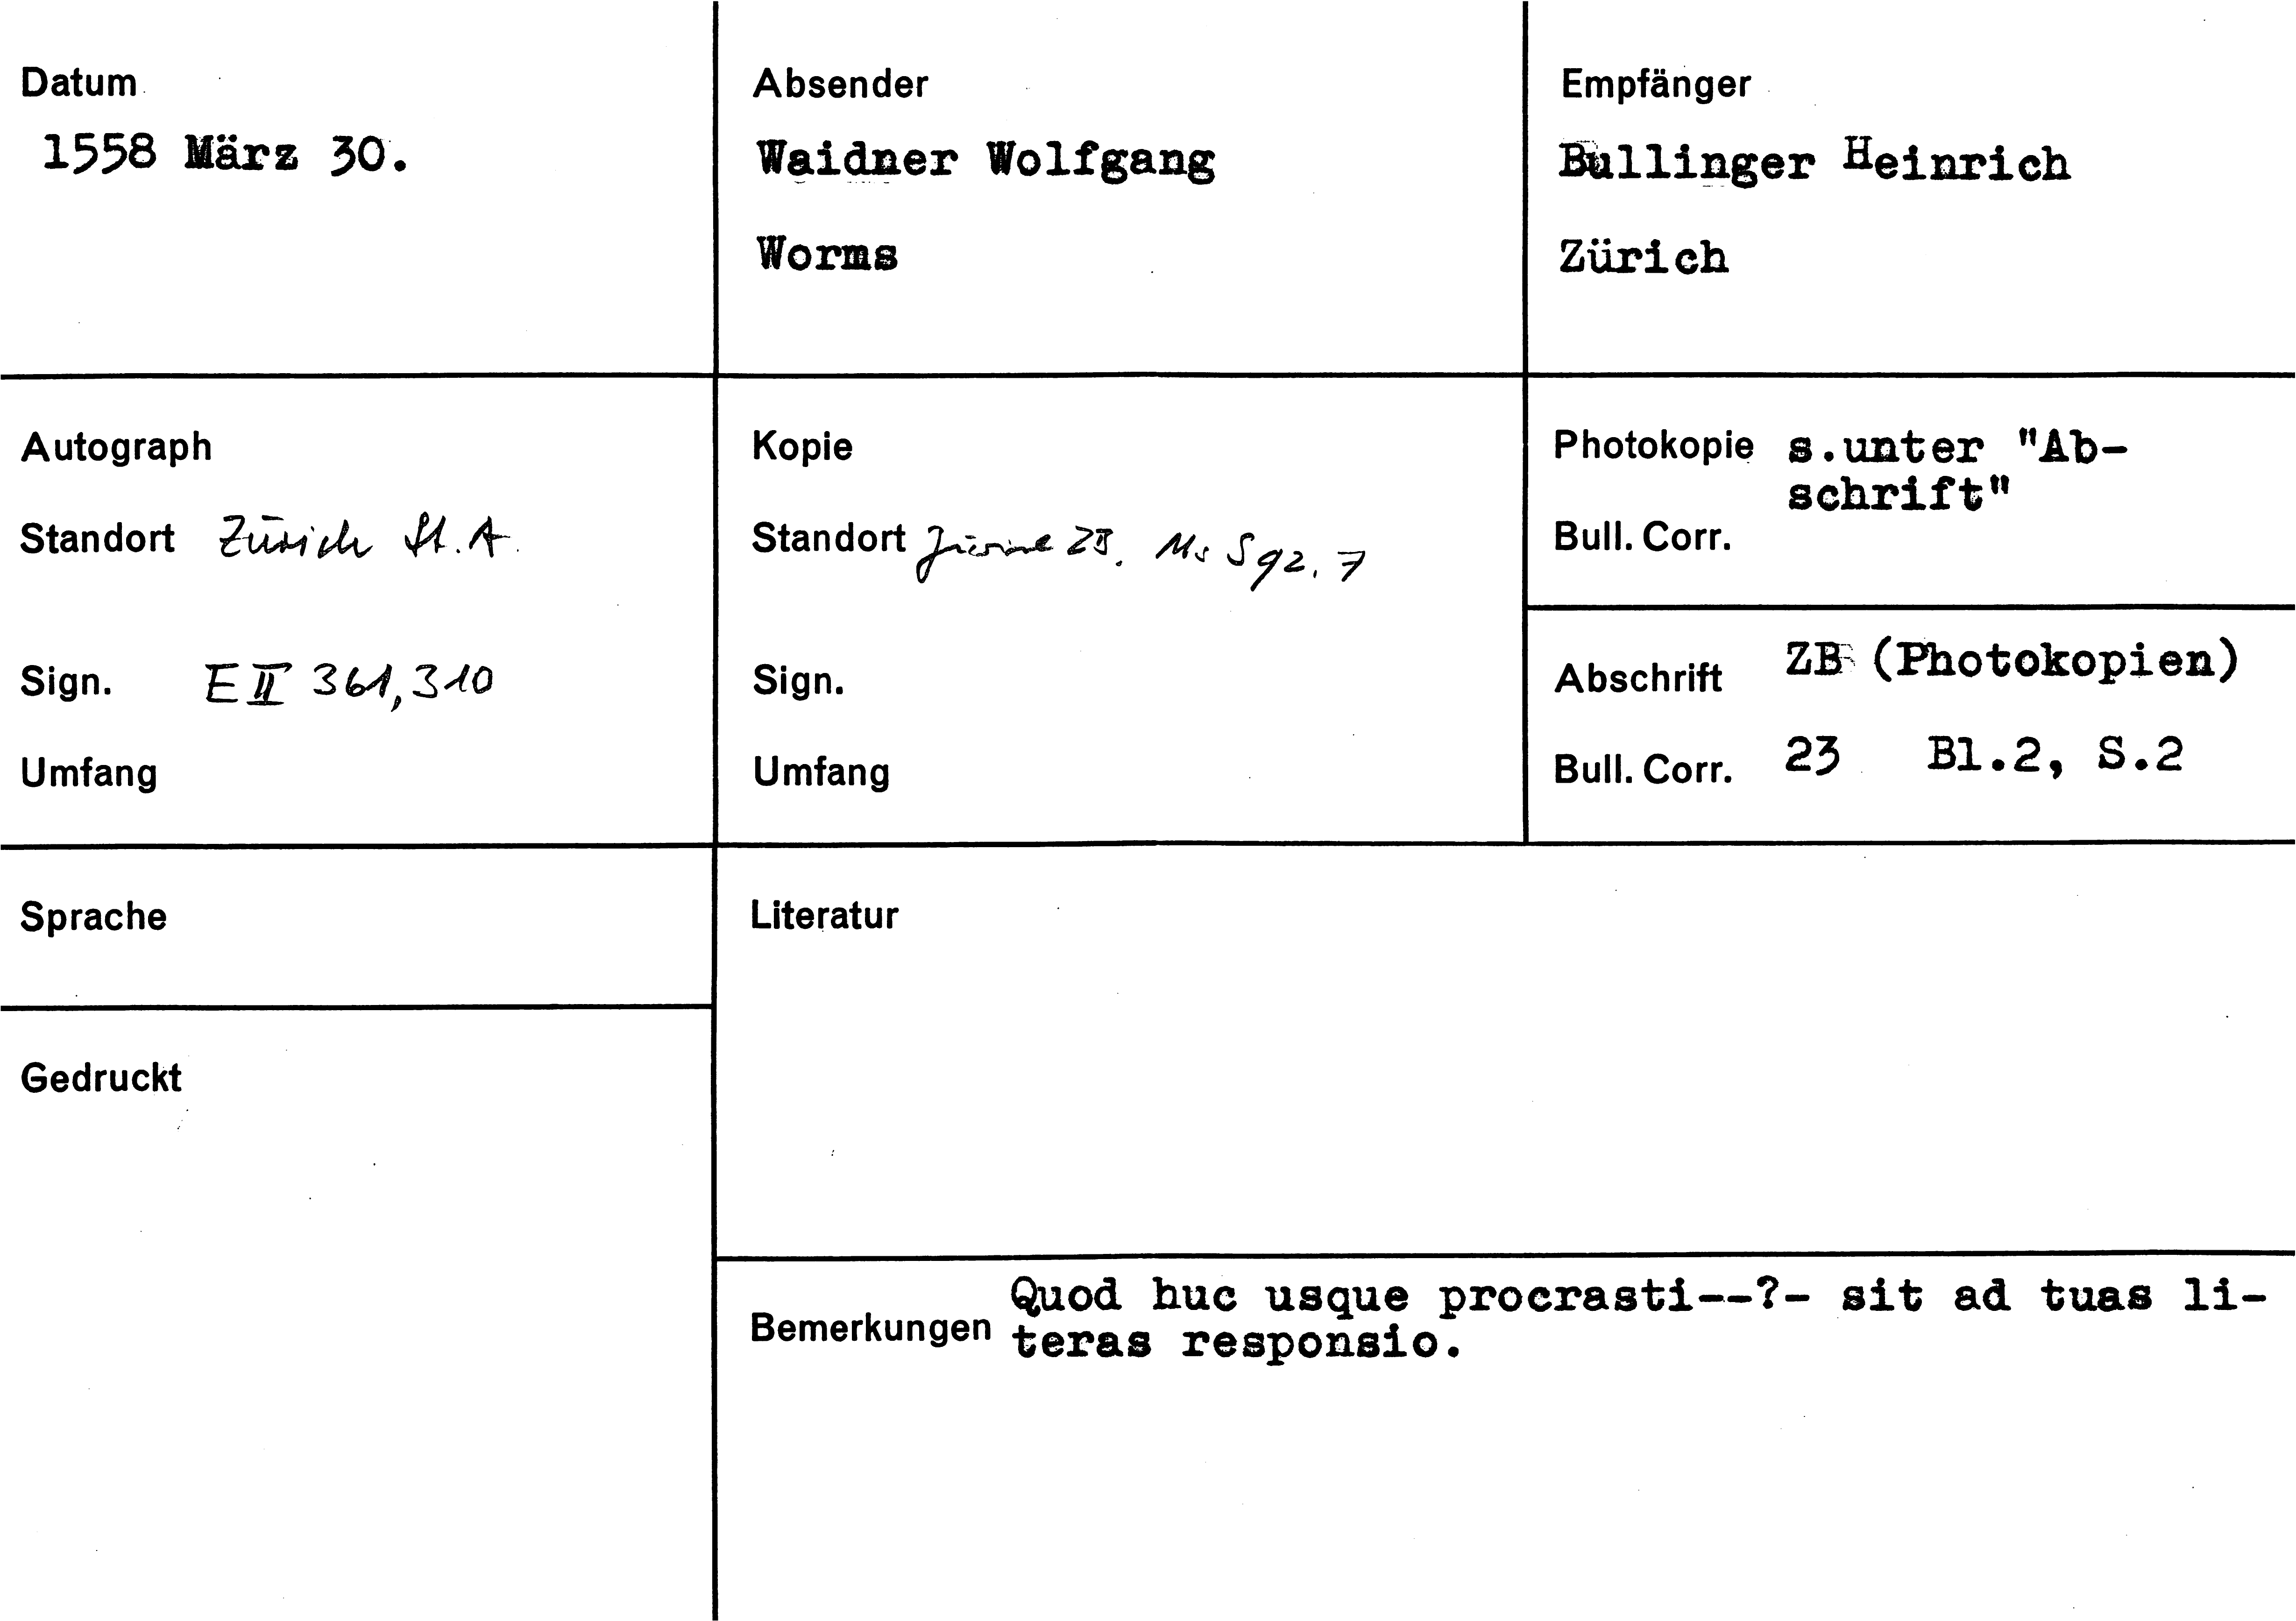 Datum
1558 März 30.
Absender
Waidner Wolfgang
Worms
Empfänger
Bullinger Heinrich
Zürich
Autograph
Standort Zürich St. A.
Sign. E II 361, 310
Umfang
Kopie
Standort Zürich ZB. Ms S 92, 7
Sign.
Umfang
Photokopie s.unter "Ab-
schrift"
Bull. Corr.
Abschrift ZB (Photokopien)
Bull. Corr. 23 Bl.2, S.2
Sprache
Literatur
Gedruckt
Bemerkungen Quod huc usque procrasti--?- sit ad tuas li-
teras responsio.